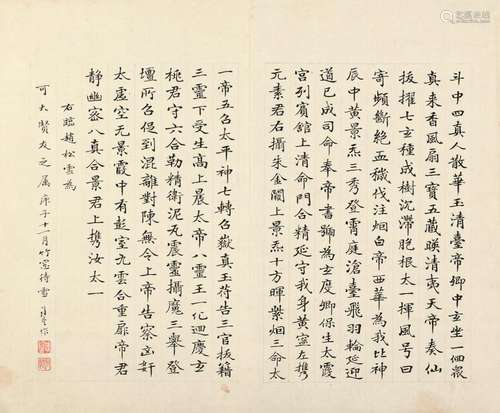 斗中四真人散華玉清臺帝卿中玄坐一個眾
真来香風扇三寶五蔵暎清夷天帝奏仙
拔擢七玄種成樹沉滯胞根太一揮風號曰
寄頻斷絶血穢伐注烟白帝西華為我比神
辰中黄景炁三秀登霄庭滄臺飛羽輪延迎
道已成司命奉帝書為玄度卿保生太霞
宫列賓館上清命門合精延守我身黄室左携
元素君右攝朱金闕上景炁十方暉紫烟三命太
一帝五召太平神七轉召嶽真玉荷告三官拔籍
三靈下受生髙上晨太帝八靈王一化迴慶玄
桃君守六合勒精衛泥丸震靈攝魔三舉登
壇所召侵到混離對陳無令上帝告察凶奸
太虚空无景霞中有彭室九雲合重扉帝君
静幽察八真合景君上携汝太一
右臨趙松雪為
可大賢友之属庚子十一月竹窓待雪